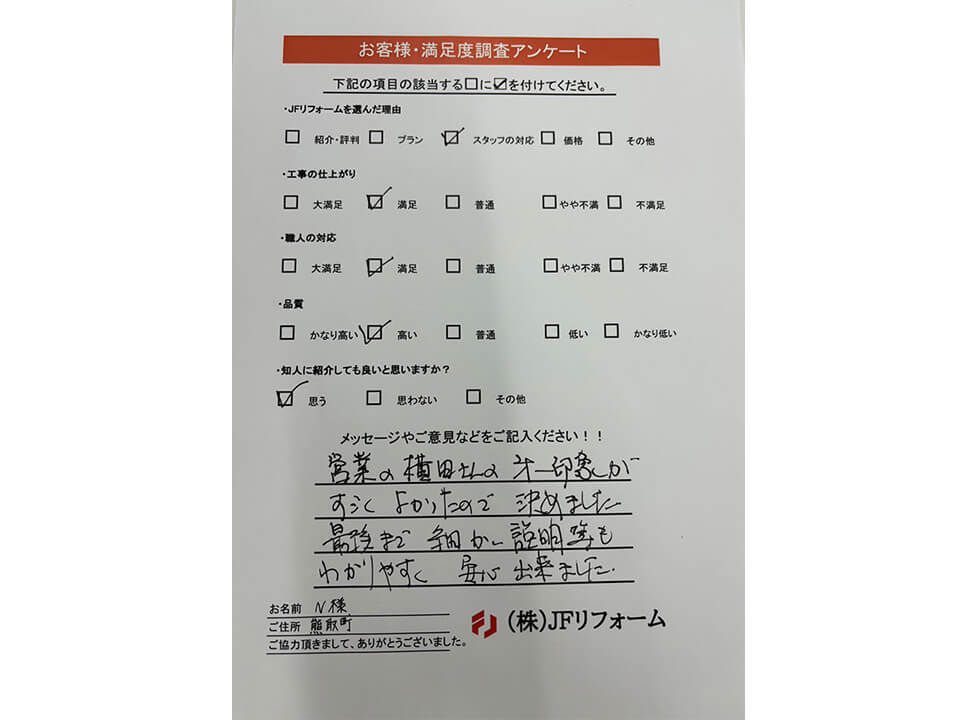 お客様・満足度調査アンケート
下記の項目の該当する□に☑を付けてください。
・JFリフォームを選んだ理由
□ 紹介・評判 □ プラン ☑ スタッフの対応 □ 価格 □ その他
・工事の仕上がり
□ 大満足 ☑ 満足 □ 普通 □ やや不満 □ 不満足
・職人の対応
□ 大満足 ☑ 満足 □ 普通 □ やや不満 □ 不満足
・品質
□ かなり高い ☑ 高い □ 普通 □ 低い □ かなり低い
・知人に紹介しても良いと思いますか？
☑ 思う □ 思わない □ その他
メッセージやご意見などをご記入ください！！
営業の横田さんの 第一印象が
すごく よかったので 決めました
最後まで 細かい 説明等も
わかりやすく 安心 出来ました.
お名前 N様
ご住所 熊取町
ご協力頂きまして、ありがとうございました。
(株)JFリフォーム